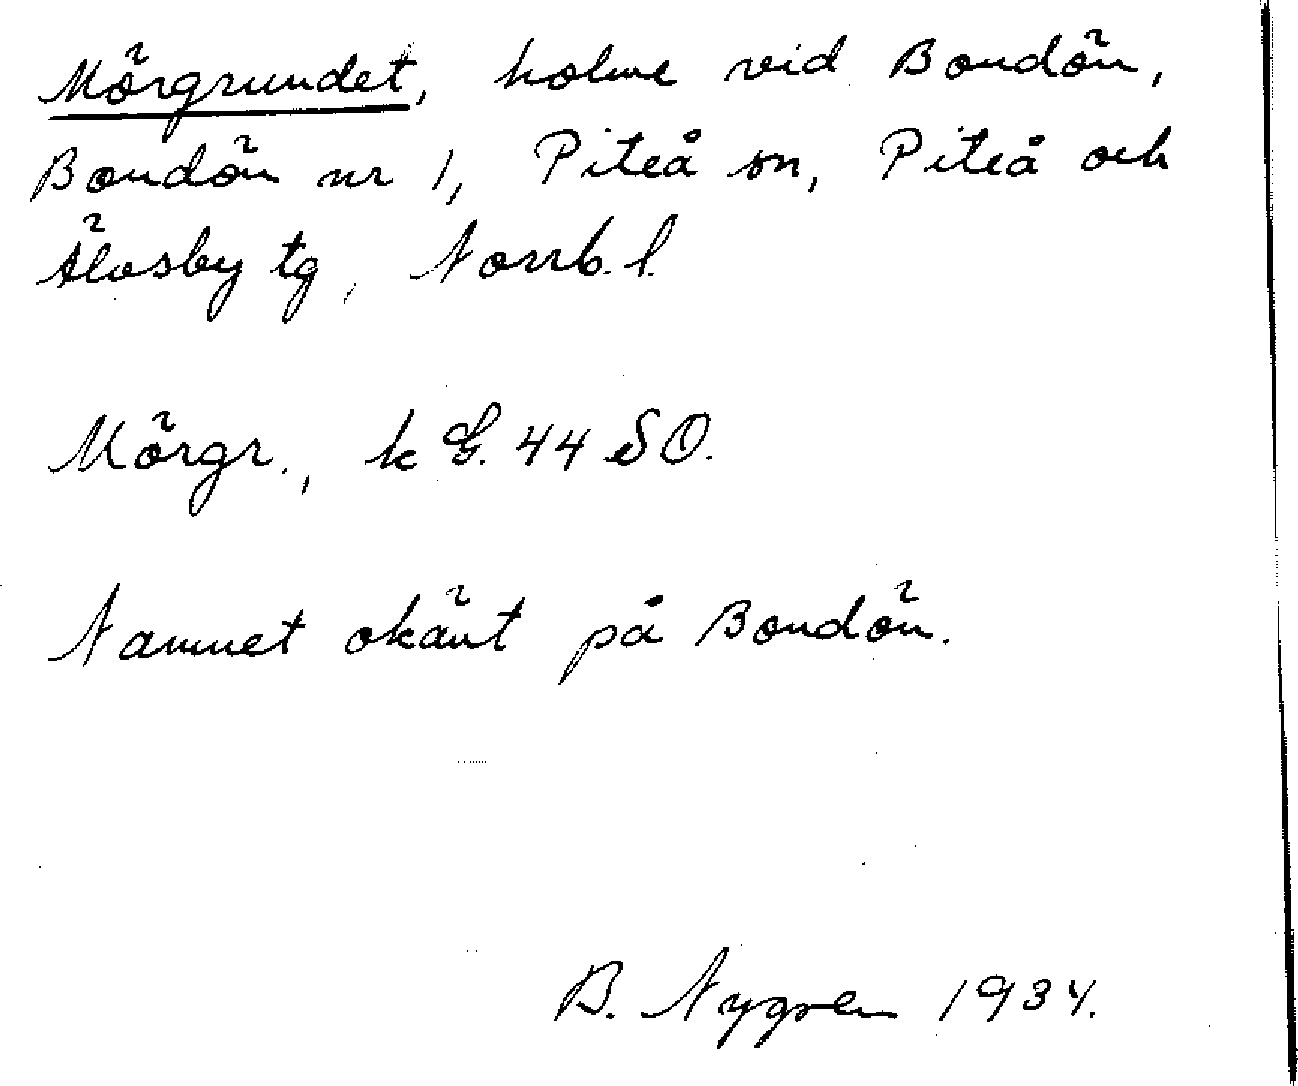 Mörgrundet, holme vid Bondön,
Bondön nr 1, Piteå sn, Piteå och
Älvsby tg, Norrb. l.
Mörgr., k G. 44 SO.
Namnet okänt på Bondön.
B. Nygren 1934.